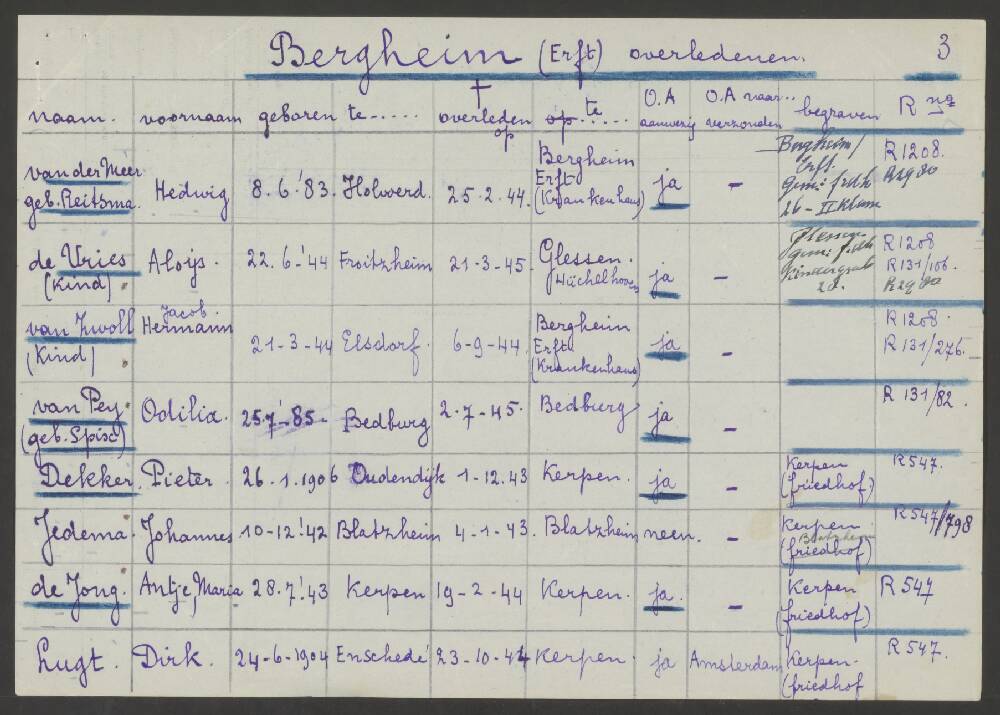 Bergheim (Erft) overledenen. 3
naam. voornaam geboren te...... overleden op op te..... O.A aanwezig O.A naar... verzonden begraven R no
van der Meer geb. Reitsma Hedwig 8.6.'83. Holwerd. 25.2.44. Bergheim Erft (Krankenhaus) ja - Bergheim/ Erft. 26 - II Klasse R1208.
de Vries (Kind) Aloijs. 22.6-'44 Froitzheim 21-3-45. Glessen. Hüchelhoven ja - Glessen R1208 R131/106.
van Zwoll (Kind) Jacob. Hermann 21-3-44 Elsdorf. 6-9-44. Bergheim Erft (Krankenhaus) ja - R1208. R131/276.
van Pey. (geb. Spise) Odilia. 25.7'-85- Bedburg 2.7-45. Bedburg ja - R 131/82.
Dekker. Pieter. 26.1.1906 Oudendijk 1-12.43 Kerpen. ja - Kerpen (friedhof) R547.
Jedema. Johannes 10-12!42 Blatzheim 4-1-43. Blatzheim neen. - Kerpen. Blatzheim (friedhof) R547/798
de Jong. Antje, Maria 28.7!43 Kerpen 19-2-44 Kerpen. ja. - Kerpen (friedhof) R 547
Lugt. Dirk. 24-6-1904 Enschedé 23-10-44 Kerpen. ja Amsterdam Kerpen. (friedhof R 547.